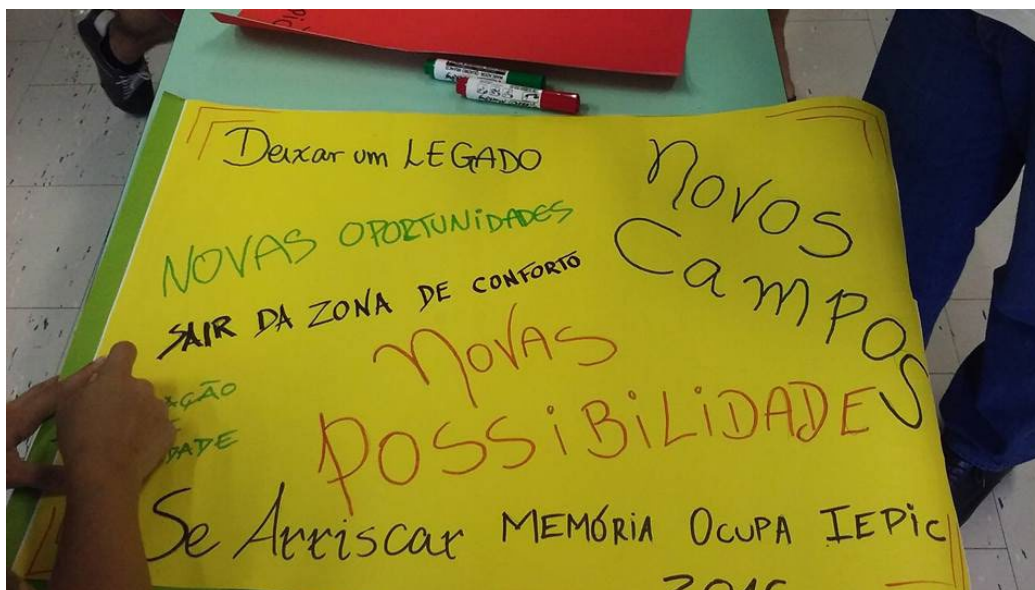 Deixar um LEGADO
NOVOS
CamPOS
NOVAS OPORTUNIDADES
SAIR DA ZONA DE CONFORTO
NOVAS
POSSiBiLiDADES
Se Arriscar
MEMÓRIA OCUPA IEPic